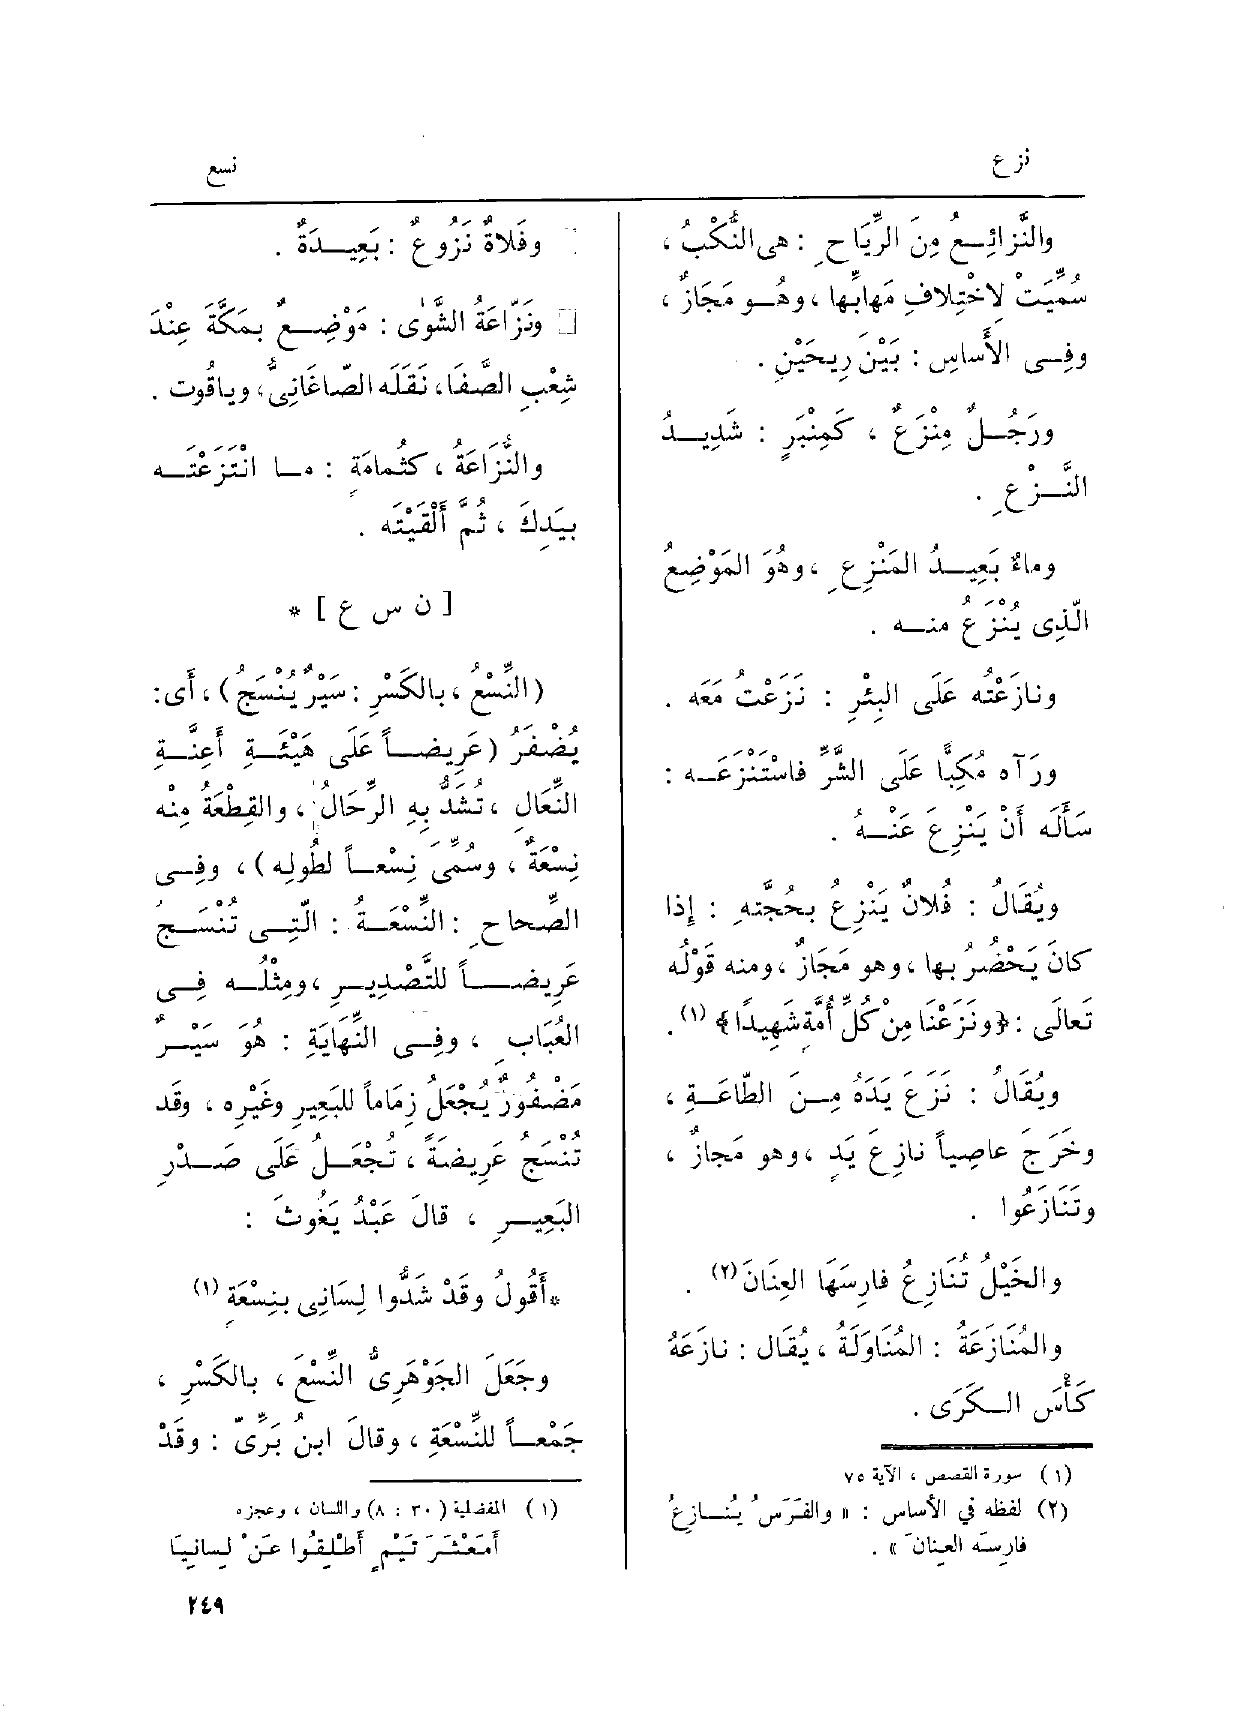 نزع
نسع
والنَّزائِعُ مِنَ الرِّيَاحِ : هى النُّكْبُ ،
سُمِّيَتْ لِاخْتِلافِ مَهابِّها ، وهُو مَجَازٌ ،
وفِى الأَساسِ : بَيْنَ رِيحَيْنِ .
ورَجُلٌ مِنْزَعٌ ، كَمِنْبَرٍ : شَدِيدُ
النَّزْعِ .
وماءٌ بَعِيدُ المَنْزِعِ ، وهُوَ المَوْضِعُ
الَّذِى يُنْزَعُ منه .
ونازَعْتُه عَلَى البِئْرِ : نَزَعْتُ مَعَه .
ورَآه مُكِبًّا عَلَى الشَّرِّ فاسْتَنْزَعَه :
سَأَلَه أَنْ يَنْزِعَ عَنْهُ .
ويُقَالُ : فُلانٌ يَنْزِعُ بحُجَّتِه : إِذا
كانَ يَحْضُرُ بها ، وهو مَجَازٌ ، ومنه قَوْلُه
تَعالَى : ﴿ونَزَعْنَا مِنْ كُلِّ أُمَّةٍ شَهِيدًا﴾ (١) .
ويُقَالُ : نَزَعَ يَدَهُ مِنَ الطّاعَةِ ،
وخَرَجَ عاصِياً نازِعَ يَدٍ ، وهو مَجازٌ ،
وتَنَازَعُوا .
والخَيْلُ تُنَازِعُ فارِسَهَا العِنَانَ (٢) .
والمُنَازَعَةُ : المُنَاوَلَةُ ، يُقَال : نازَعَهُ
كَأْسَ الكَرَى .
(١) سورة القصص ، الآية ٧٥
(٢) لفظه في الأساس : « والفَرَسُ يُنازِعُ
فارسَه العِنانَ » .
وفَلاةٌ نَزُوعٌ : بَعِيدَةٌ .
□ ونَزّاعَةُ الشَّوَى : مَوْضِعٌ بمَكَّةَ عِنْدَ
شِعْبِ الصَّفَا، نَقَلَه الصّاغَانِىُّ، وياقُوت .
والنُّزَاعَةُ ، كثُمامَةٍ : ما انْتَزَعْتَه
بِيَدِكَ ، ثُمَّ أَلْقَيْتَه .
[ ن س ع ] *
(النِّسْعُ ، بالكَسْرِ : سَيْرٌ يُنْسَجُ) ، أَى :
يُضْفَرُ (عَرِيضاً عَلَى هَيْئَةِ أَعِنَّةِ
النِّعَالِ ، تُشَدُّ بِهِ الرِّحَالُ ، والقِطْعَةُ مِنْه
نِسْعَةٌ ، وسُمِّىَ نِسْعاً لطُولِه) ، وفِى
الصِّحاحِ : النِّسْعَةُ : الَّتِى تُنْسَجُ
عَرِيضاً للتَّصْدِيرِ ، ومِثْلُه فِى
العُبَابِ ، وفِى النِّهَايَةِ : هُوَ سَيْرٌ
مَضْفُورٌ يُجْعَلُ زِمَاماً للبَعِيرِ وغَيْرِه ، وقد
تُنْسَجُ عَرِيضَةً ، تُجْعَلُ عَلَى صَدْرِ
البَعِيرِ ، قالَ عَبْدُ يَغُوثَ :
*أَقُولُ وقَدْ شَدُّوا لِسَانِى بنِسْعَةٍ (١)
وجَعَلَ الجَوْهَرِىُّ النِّسْعَ ، بالكَسْرِ ،
جَمْعاً للنِّسْعَةِ ، وقالَ ابنُ بَرِّىّ : وقَدْ
(١) المفضلية (٣٠ : ٨) واللسان ، وعجزه
أمَعْشَرَ تَيْمٍ أَطْلِقُوا عَنْ لِسانِيَا
٢٤٩